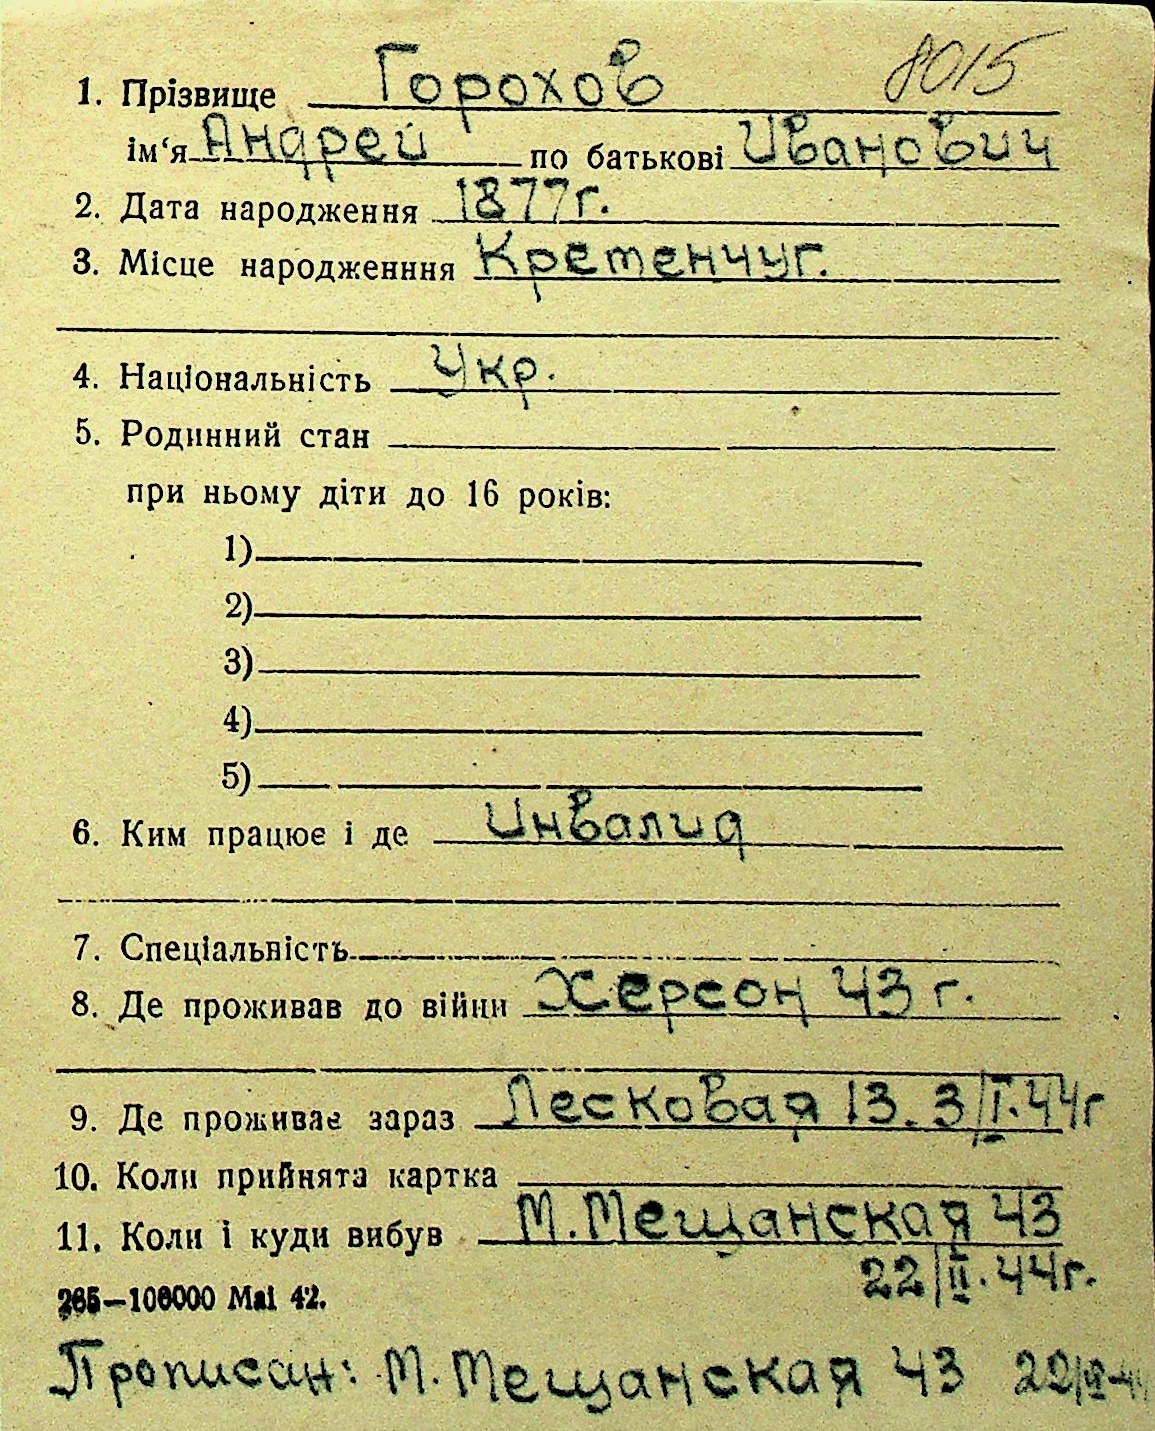 8015
1. Прізвище Горохов
ім‘я Андрей по батькові Иванович
2. Дата народження 1877г.
3. Місце народженння Кретенчуг.
4. Національність Укр.
5. Родинний стан
при ньому діти до 16 років:
1)
2)
3)
4)
5)
6. Ким працює і де Инвалид
7. Спеціальність
8. Де проживав до війни Херсон 43 г.
9. Де проживає зараз Лесковая 13. 3/I.44г
10. Коли прийнята картка
11. Коли і куди вибув М.Мещанская 43
22/II.44г.
265—100000 Маі 42.
Прописан: М.Мещанская 43 22/II-44